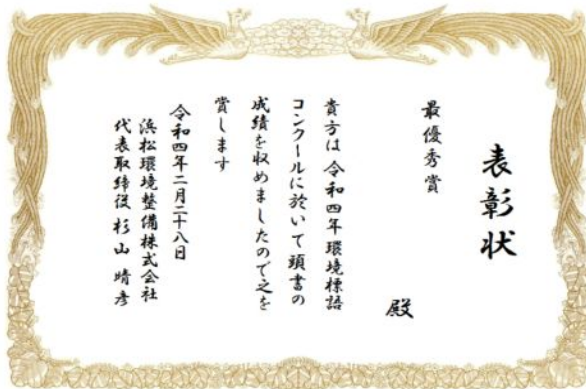 表彰状
最優秀賞
殿
貴方は 令和四年環境標語
コンクールに於いて頭書の
成績を収めましたので之を
賞します
令和四年二月二十八日
浜松環境整備株式会社
代表取締役 杉山 晴彦